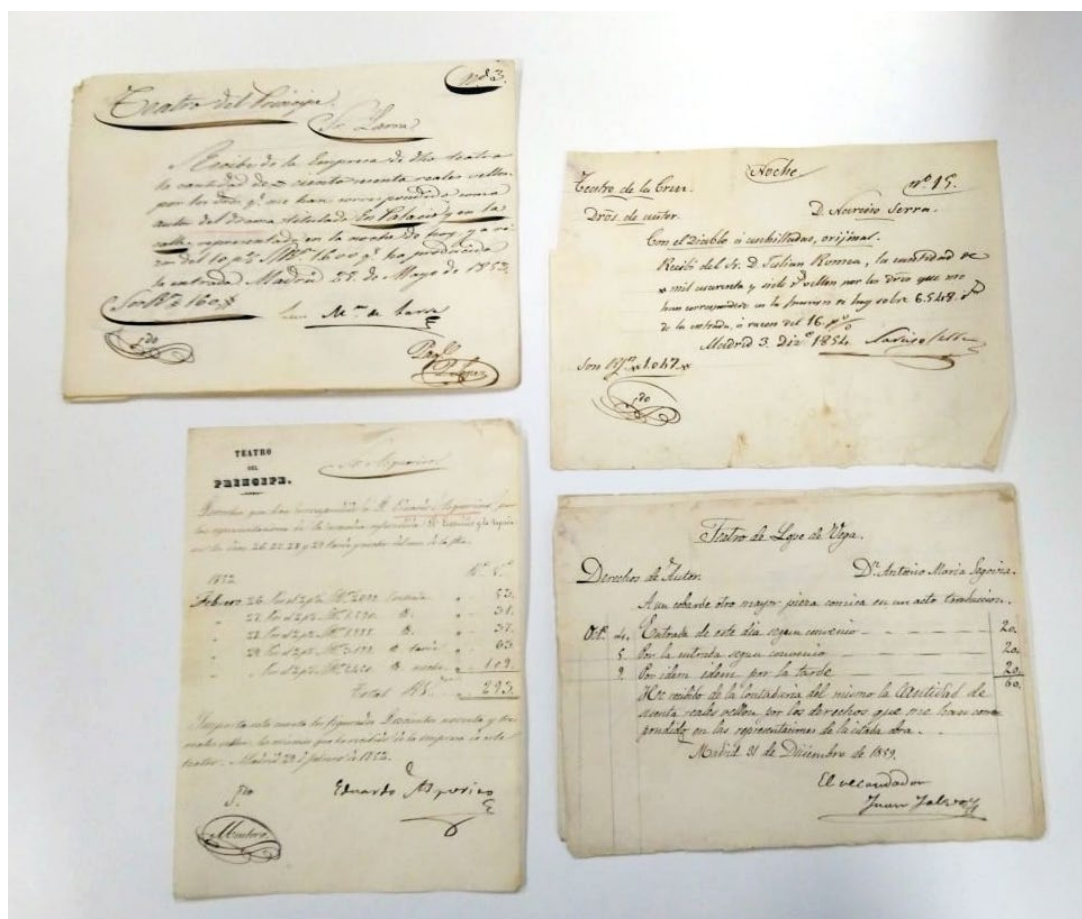 nº 3.
Teatro del Principe.
Sr. Larra
Recibí de la Empresa de dho teatro
la cantidad de ciento sesenta reales vellon
por los dros q.e me han correspondido como
autor del drama titulado En Palacio y en la
calle representado en la noche de hoy y a ra-
zon del 10 p% 1600 q.e ha producido
la entrada Madrid de Mayo de 1852.
Son 160
Luis M.no de Larra
Noche.
Teatro de la Cruz.
nº 15.
Dros. de autor.
D. Narciso Serra.
Con el Diablo á cuchilladas, orijinal.
Recibí del Sr. D. Julian Romea, la cantidad de
mil cuarenta y siete vellon por los dros que me
han correspondido en la funcion de hoy sobre 6.548
de la entrada, á razon del 16. p%
Madrid 3. Diz.e 1854. Narciso Serra
Son 1.047
TEATRO
DEL
PRINCIPE.
Sr. Asquerino
Derechos que han correspondido á D. Eduardo Asquerino por
las representaciones de la comedia
en los dias 26, 27, 28 y 29 tarde y noche del mes de la fha.
1852
Febrero 26. 53.
27. 31.
28. 37.
29. tarde 63.
noche 109.
Total 293.
Importa esta cuenta los figurados Doscientos noventa y tres
reales vellon, los mismos que he recibido de la empresa de este
teatro. Madrid 29 de febrero de 1852.
Eduardo Asquerino
Montero
Teatro de Lope de Vega.
Derechos de Autor. D.n Antonio Maria Segovia.
A un cobarde otro mayor. pieza comica en un acto traduccion.
Oct.e 4. Entrada de este dia segun convenio 20.
5. Por la entrada segun convenio 20.
9. Por idem idem por la tarde 20.
60.
He recibido de la Contaduria del mismo la Cantidad de
sesenta reales vellon por los derechos que me han corres-
pondido en las representaciones de la citada obra.
Madrid 31 de Diciembre de 1859.
El recaudador
Juan